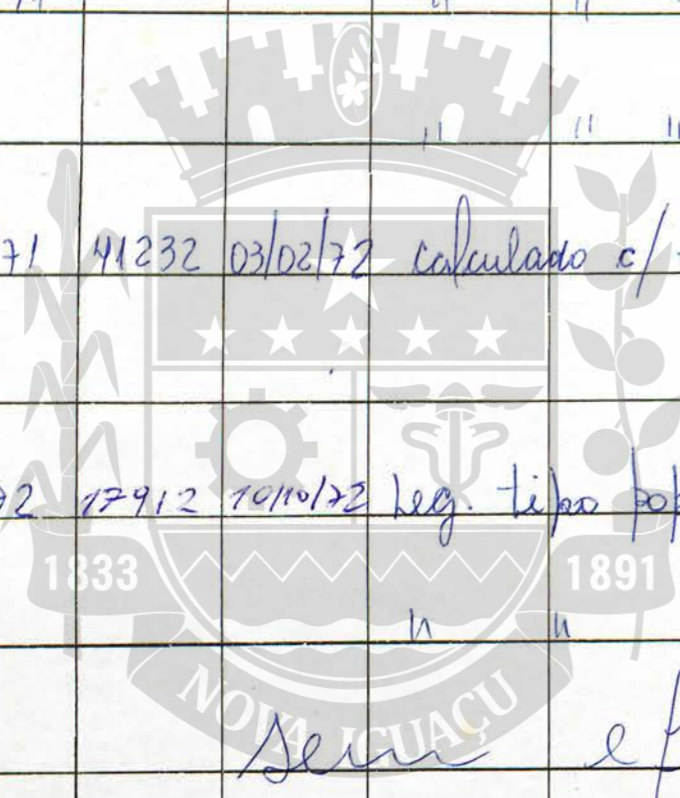 " "
" " "
71 41232 03/02/72 calculado c/
72 17912 10/10/72 Leg. tipo pop
1833 1891
" "
NOVA IGUAÇU
Sem ef